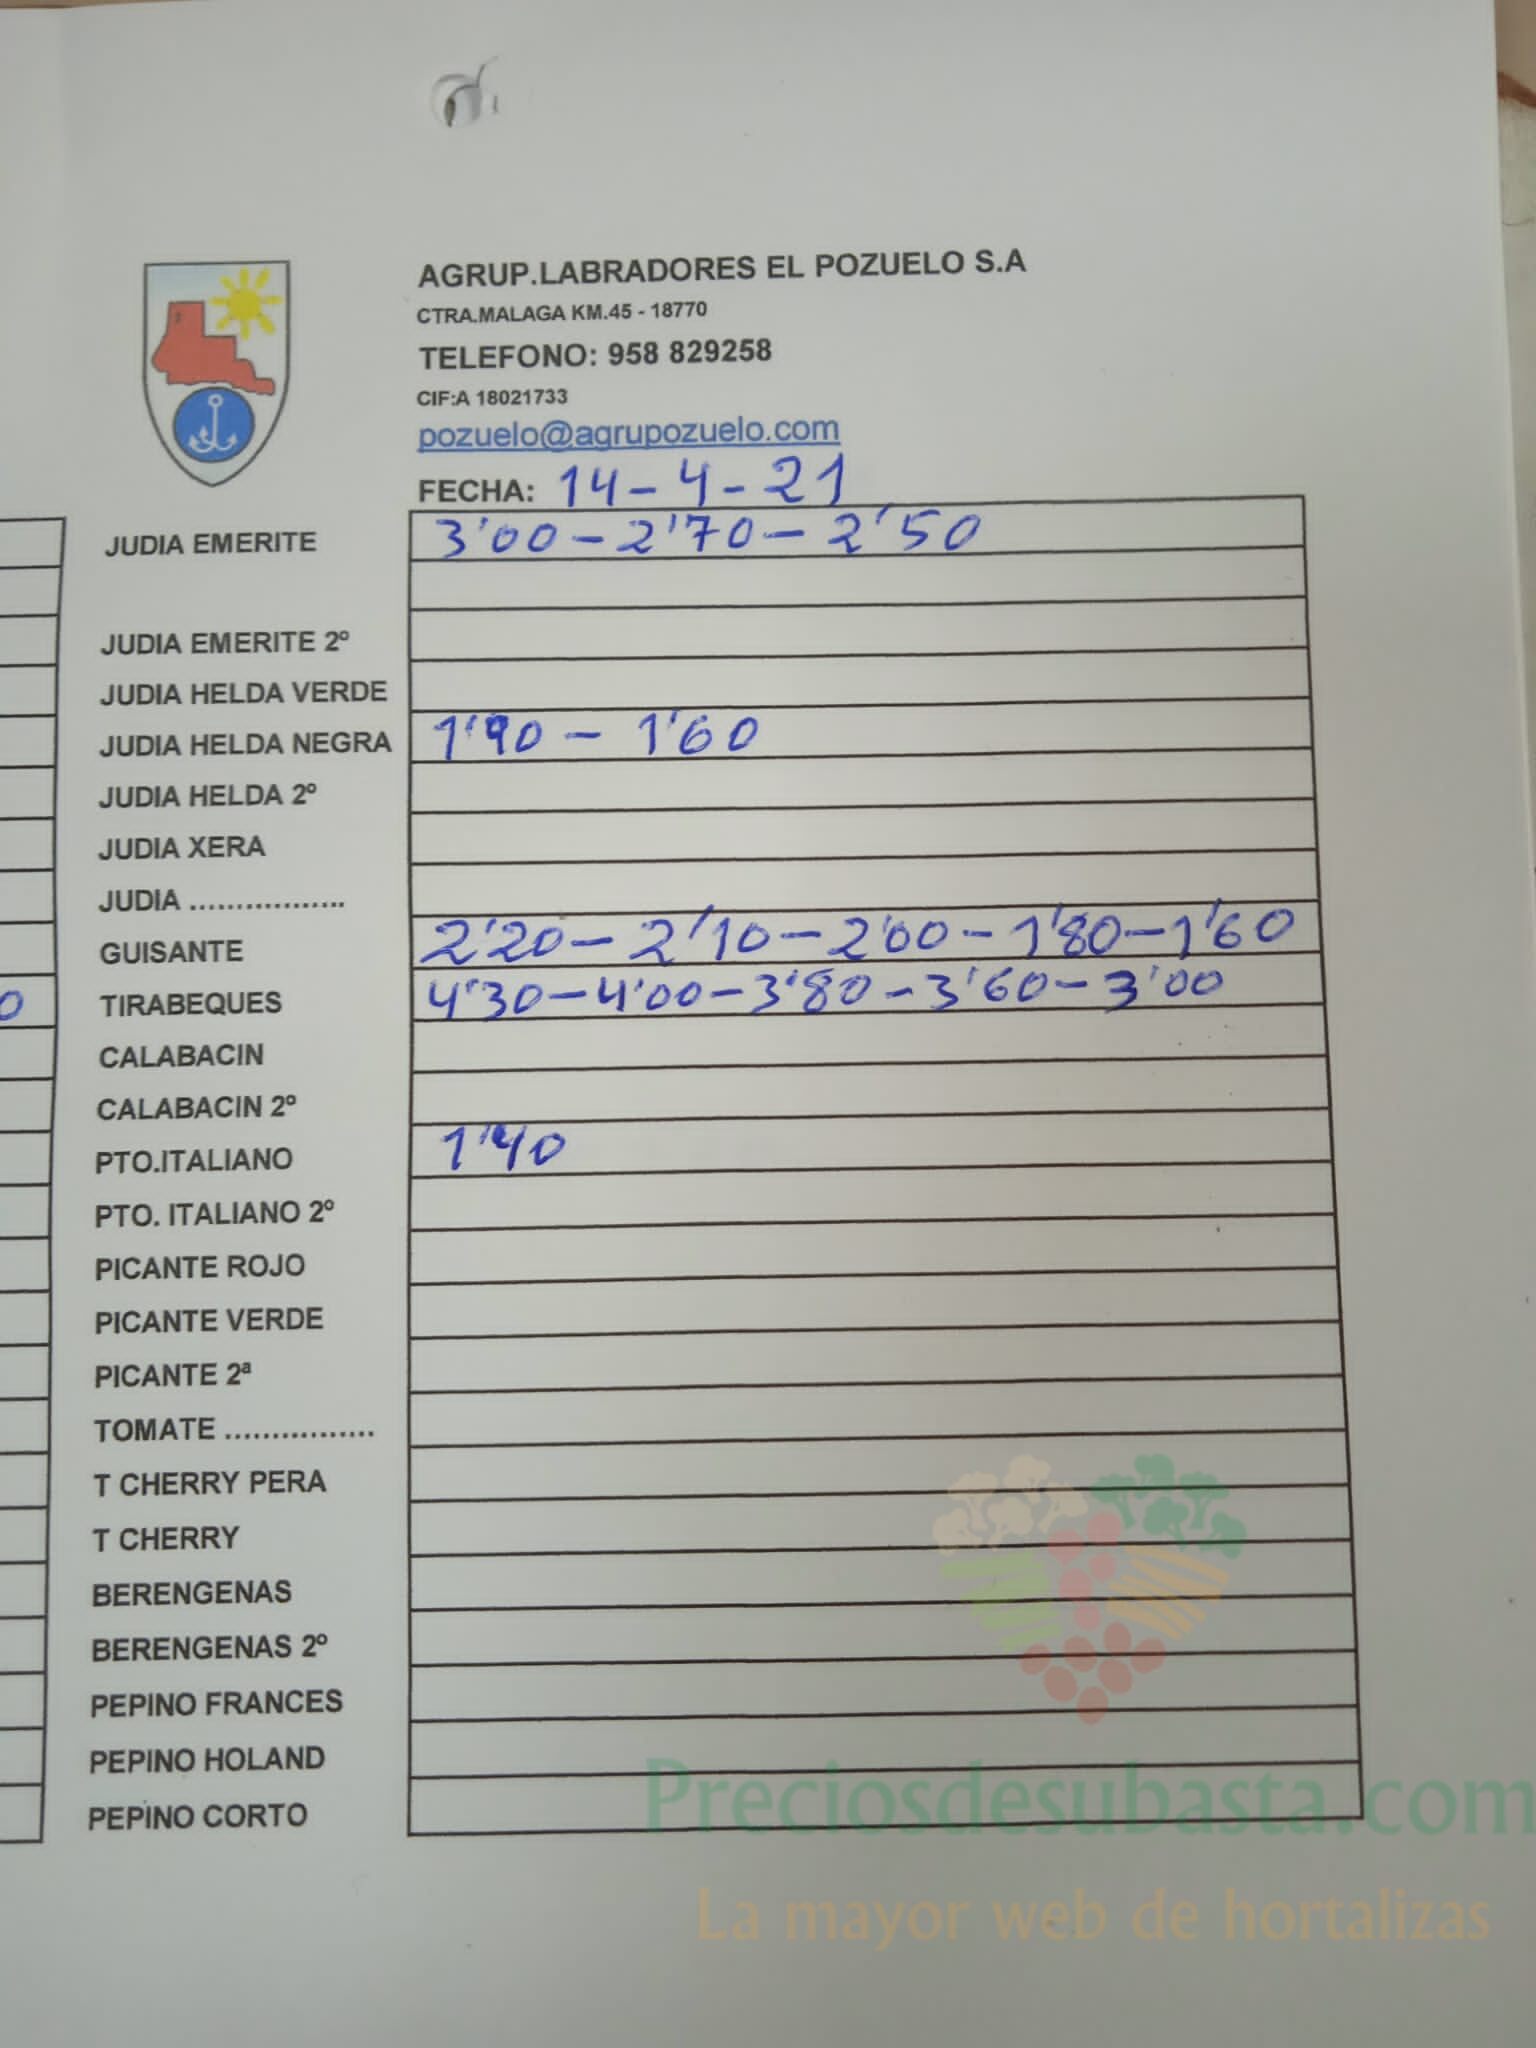 AGRUP.LABRADORES EL POZUELO S.A
CTRA.MALAGA KM.45 - 18770
TELEFONO: 958 829258
CIF:A 18021733
pozuelo@agrupozuelo.com
FECHA: 14-4-21
JUDIA EMERITE 3'00-2'70-2'50
JUDIA EMERITE 2º
JUDIA HELDA VERDE
JUDIA HELDA NEGRA 1'90 - 1'60
JUDIA HELDA 2º
JUDIA XERA
JUDIA .................
GUISANTE 2'20-2'10-2'00-1'80-1'60
0 TIRABEQUES 4'30-4'00-3'80-3'60-3'00
CALABACIN
CALABACIN 2º
PTO.ITALIANO 1'40
PTO. ITALIANO 2º
PICANTE ROJO
PICANTE VERDE
PICANTE 2ª
TOMATE ................
T CHERRY PERA
T CHERRY
BERENGENAS
BERENGENAS 2º
PEPINO FRANCES
PEPINO HOLAND
PEPINO CORTO
Preciosdesubasta.com
La mayor web de hortalizas